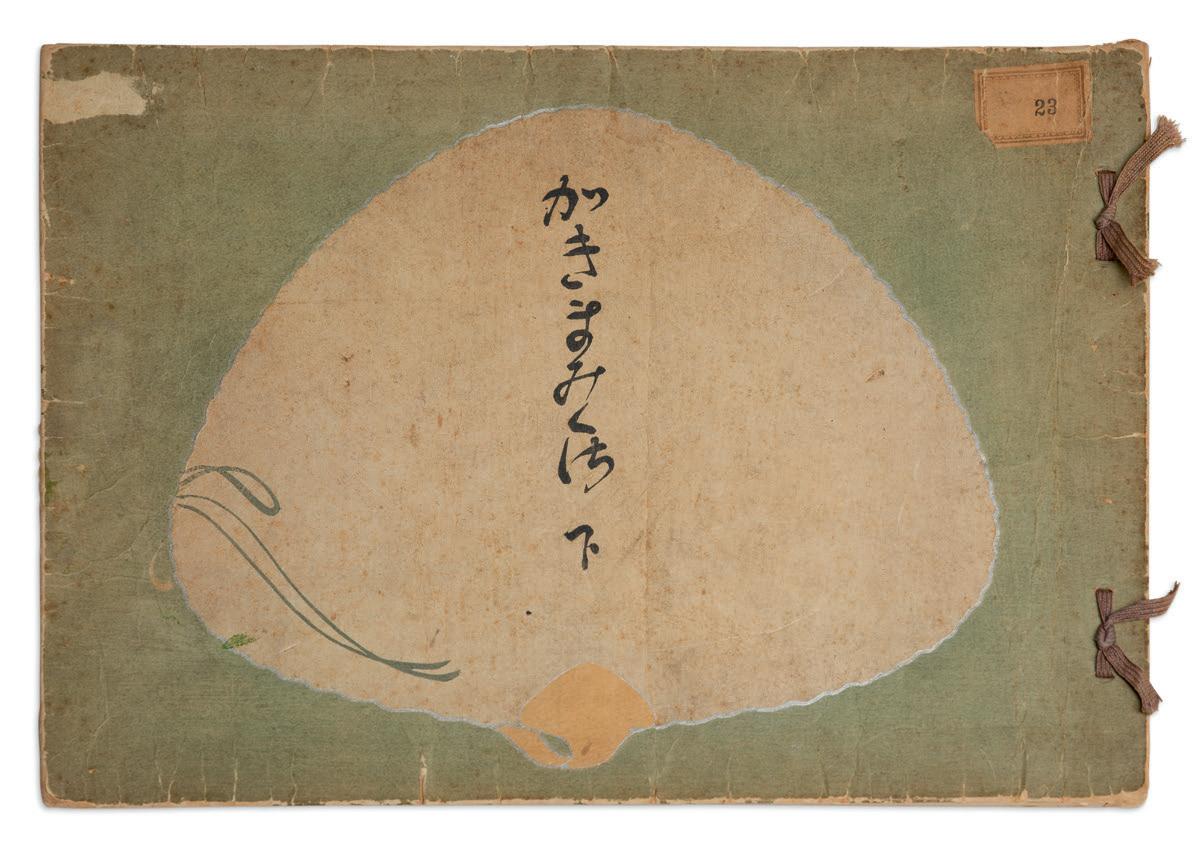 23
かきまみくさ 下